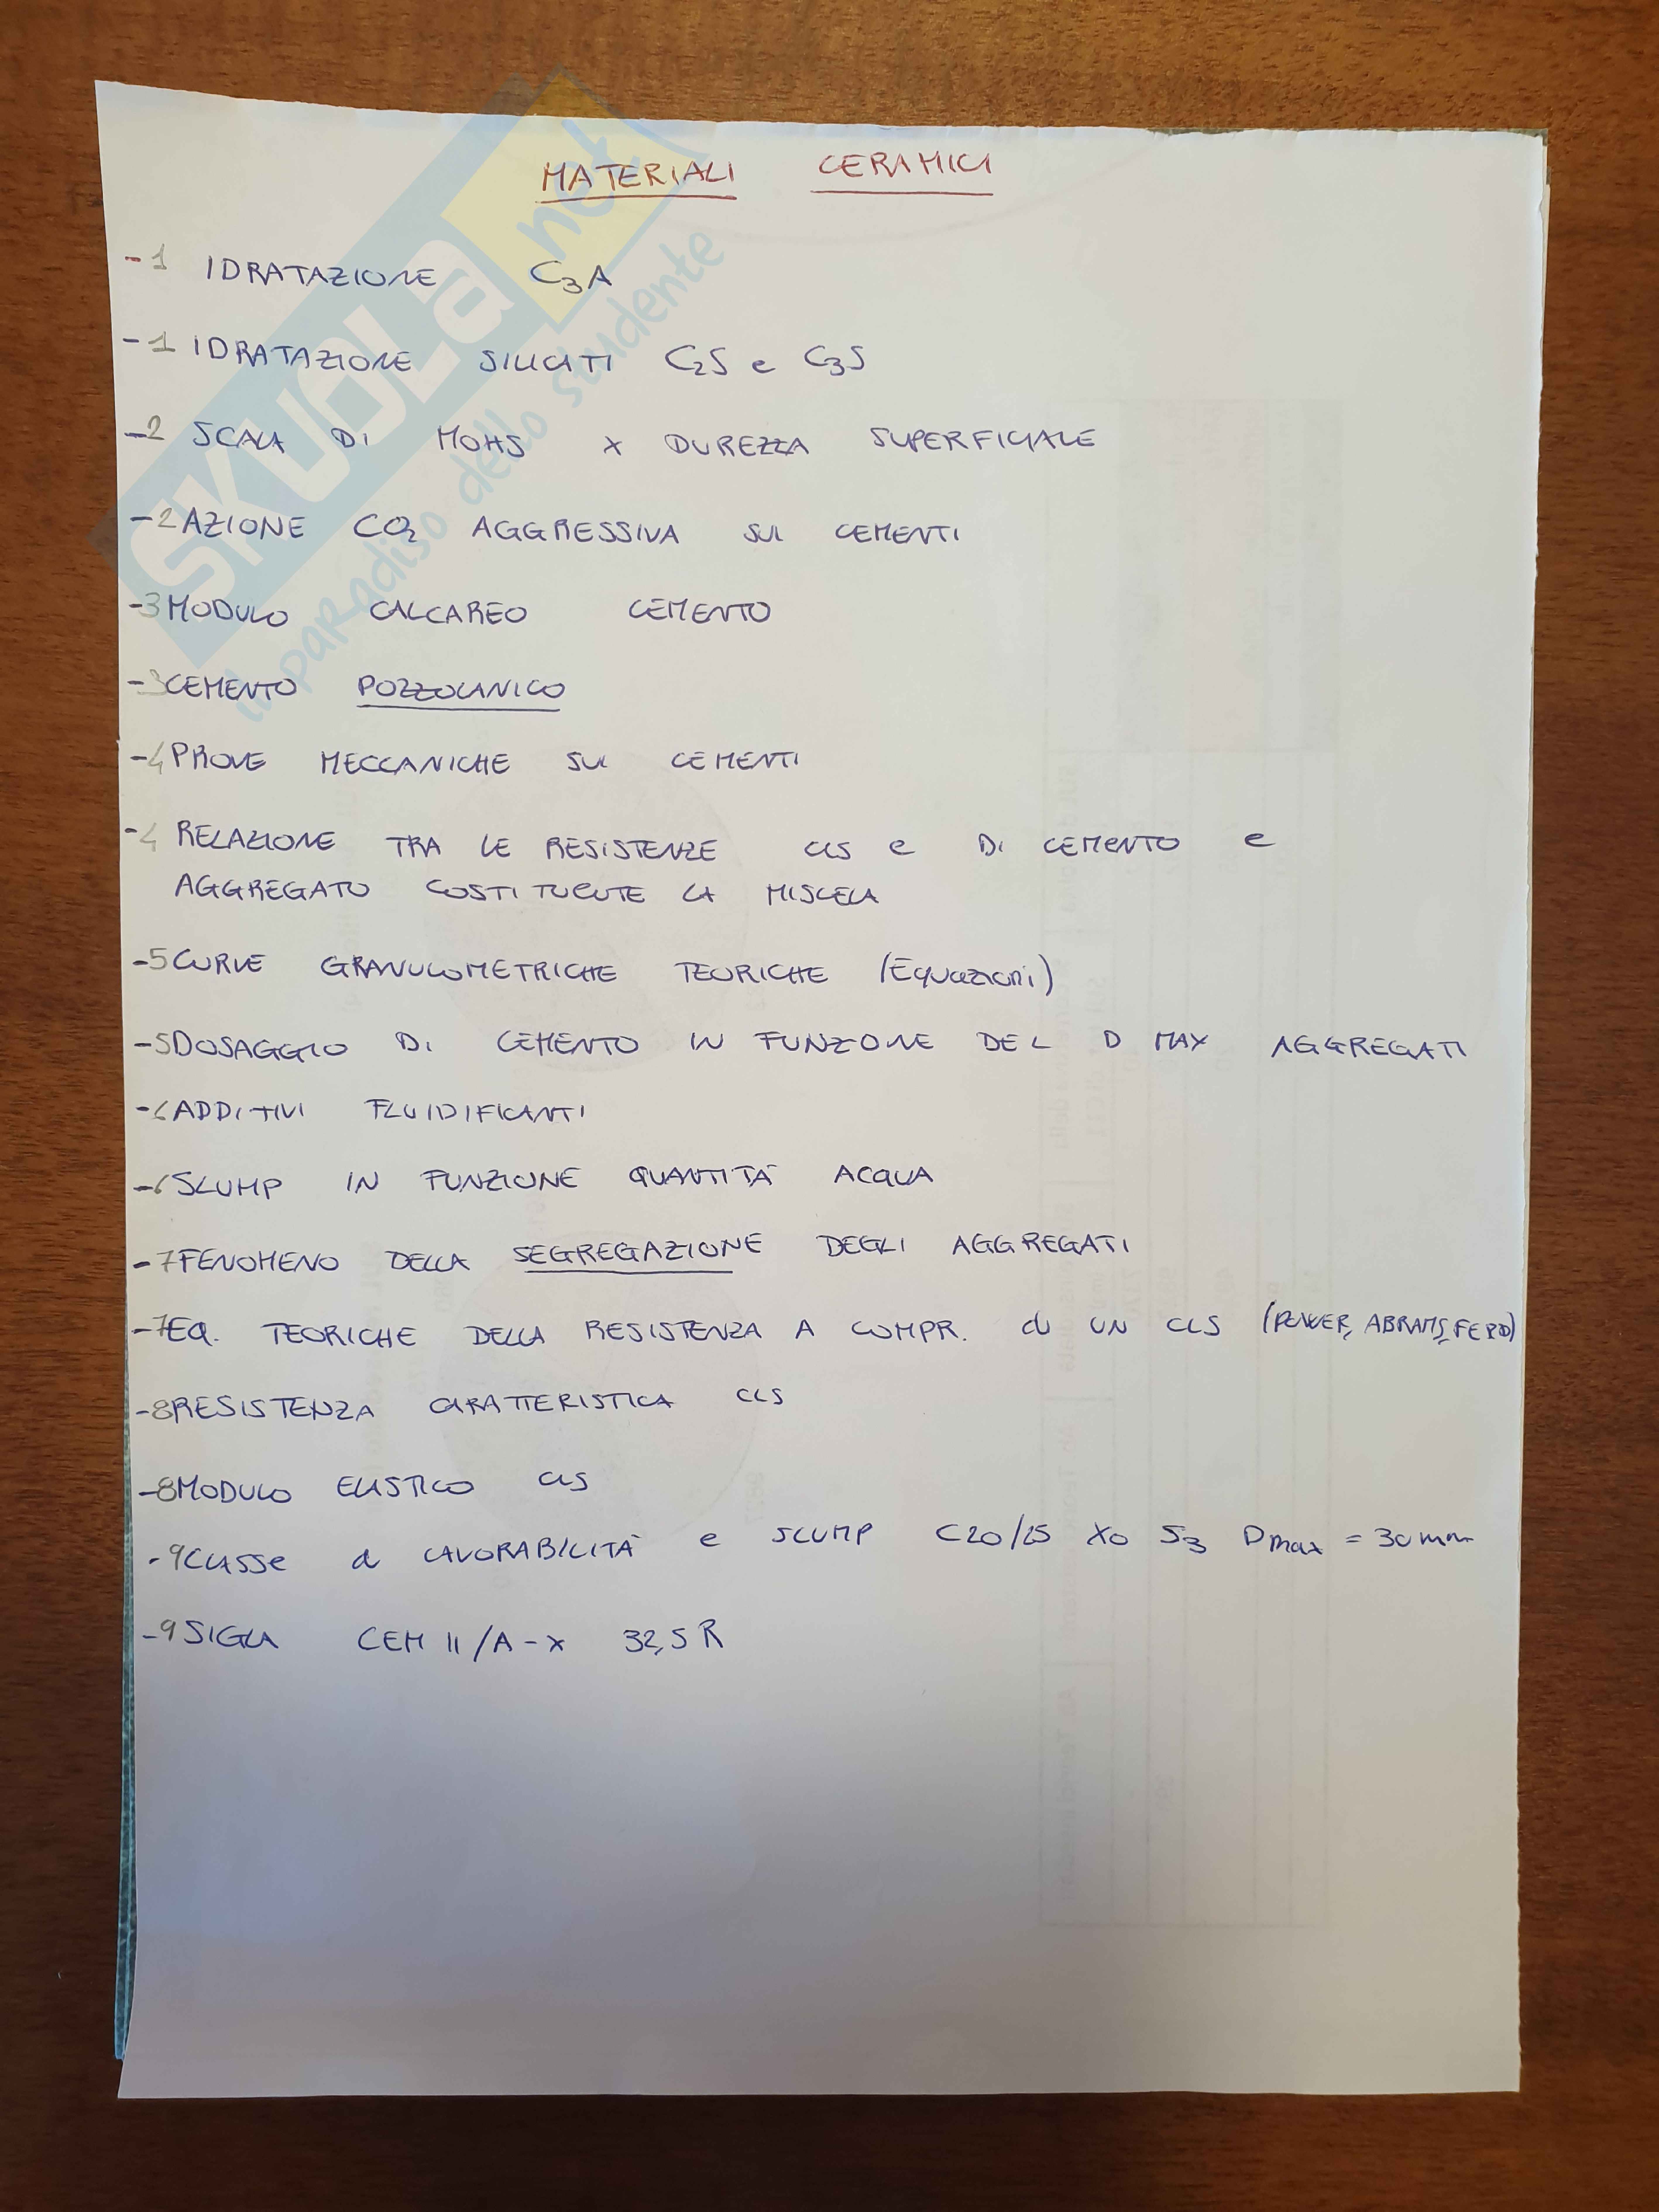 MATERIALI CERAMICI
-1 IDRATAZIONE C3A
-1 IDRATAZIONE SILICATI C2S e C3S
-2 SCALA DI MOHS X DUREZZA SUPERFICIALE
-2 AZIONE CO2 AGGRESSIVA SUI CEMENTI
-3 MODULO CALCAREO CEMENTO
-3 CEMENTO POZZOLANICO
-4 PROVE MECCANICHE SUI CEMENTI
-4 RELAZIONE TRA LE RESISTENZE CLS e DI CEMENTO e
AGGREGATO COSTITUENTE LA MISCELA
-5 CURVE GRANULOMETRICHE TEORICHE (Equazioni)
-5 DOSAGGIO DI CEMENTO IN FUNZIONE DEL D MAX AGGREGATI
-6 ADDITIVI FLUIDIFICANTI
-6 SLUMP IN FUNZIONE QUANTITÀ ACQUA
-7 FENOMENO DELLA SEGREGAZIONE DEGLI AGGREGATI
-7 EQ. TEORICHE DELLA RESISTENZA A COMPR. di UN CLS (POWER, ABRAMS, FERET)
-8 RESISTENZA CARATTERISTICA CLS
-8 MODULO ELASTICO CLS
-9 CLASSE di LAVORABILITÀ e SLUMP C20/25 X0 S3 Dmax = 30 mm
-9 SIGLA CEM II/A-X 32,5 R
SKUOLA.net
il paradiso dello studente